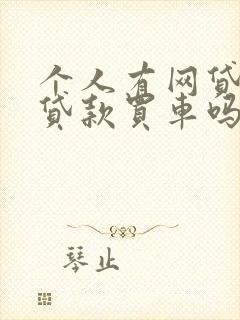 个人有网贷
贷款買車吗
琴止